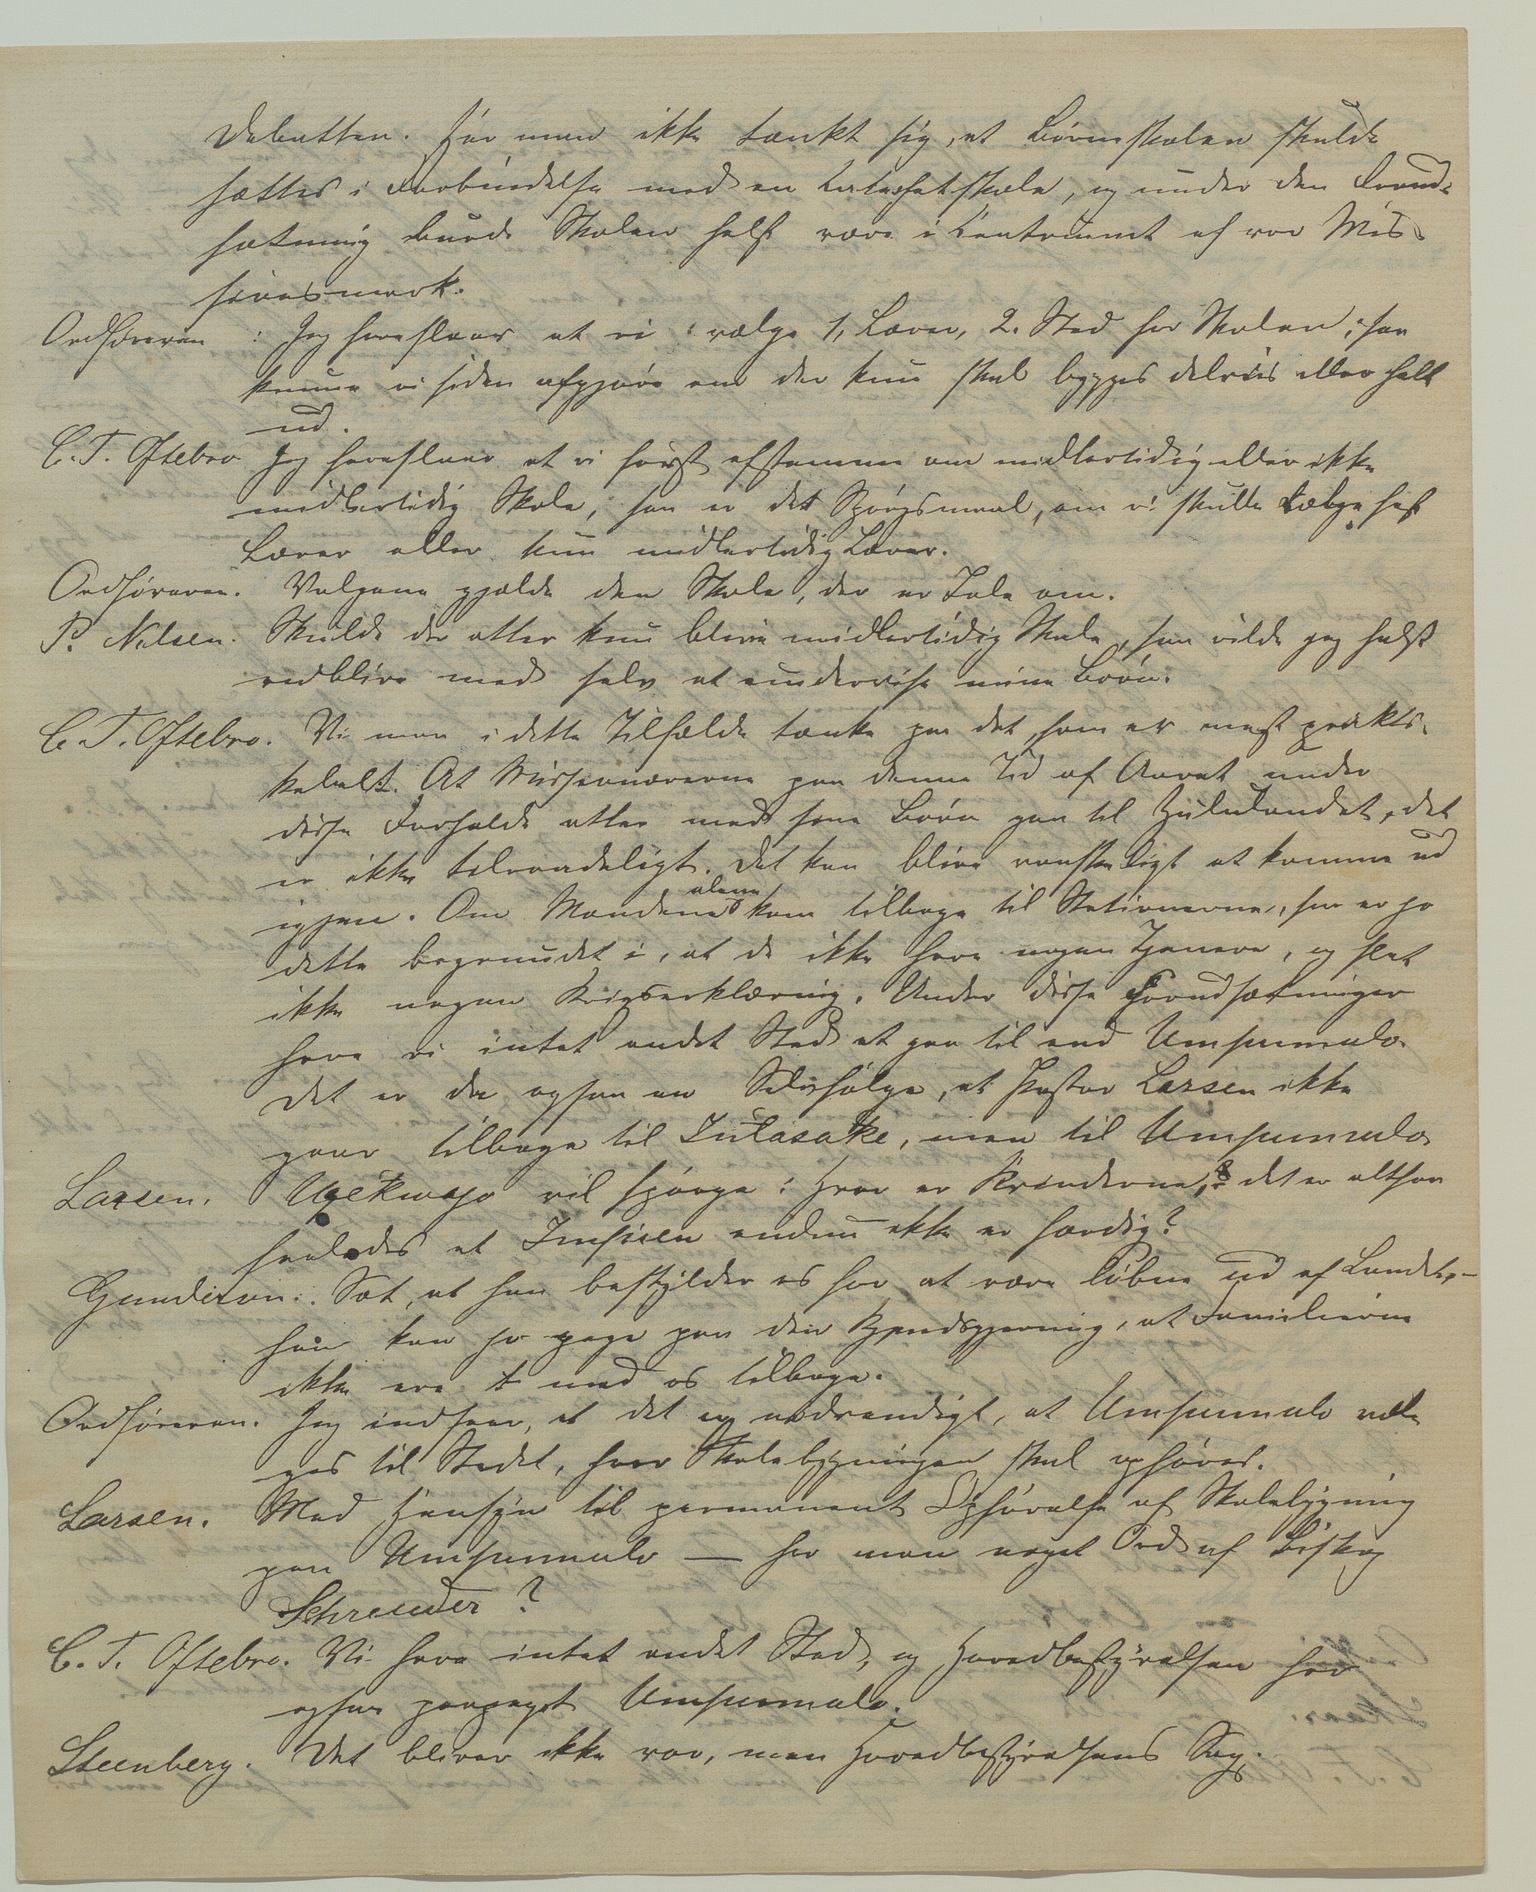 Debatten. Har man ikke tænkt sig, at Børneskolen skulde
sættes i Forbindelse med en Katechetskole, og under den Forud-
sætning burde Skolen helst være i Centrumet af vor Mis-
sionsmark.
Ordføreren : Jeg foreslaar at vi vælge 1, Lærer, 2. Sted for Skolen; saa
kunne vi siden afgjøre om der kun skal bygges delvis eller helt
ud.
C. T. Oftebro Jeg foreslaar at vi først afstemme om midlertidig eller ikke
midlertidig Skole, saa er det Spørgsmaal, om vi skulle vælge fast
Lærer eller kun midlertidig Lærer.
Ordføreren. Valgene gjælde den Skole, der er Tale om.
P. Nilsen. Skulde der atter kun blive midlertidig Skole, saa vilde jeg helst
vedblive med selv at undervise mine Børn.
C. T. Oftebro. Vi maa i dette Tilfælde tænke paa det, som er mest prakti-
kabelt. At Missionærerne paa denne Tid af Aaret under
disse Forholde atter med sine Børn gaa til Zululandet, det
er ikke tilraadeligt. Det kan blive vanskeligt at komme ud
igjen. Om Mændene alene kom tilbage til Stationerne, saa er jo
dette begrundet i, at de ikke have nogen Tjenere, og slet
ikke nogen Krigserklæring. Under disse Forudsætninger
have vi intet andet Sted at gaa til end Umpumulo.
Det er da ogsaa en Selvfølge, at Pastor Larsen ikke
gaar tilbage til Inhlasakie, men til Umpumulo
Larsen. Uqekwajo vil spørge: Hvor er Kvinderne, det er altsaa
saaledes at Impien endnu ikke er færdig?
Gundersen. Sæt, at han beskylder os for at være løbne ud af Landet,-
han kan jo pege paa den Kjendsgjerning, at Familierne
ikke ere med os tilbage.
Ordføreren. Jeg indser, at det er nødvendigt, at Umpumulo væl-
ges til Stedet, hvor Skolebygningen skal opføres.
Larsen. Med Hensyn til permanent Opførelse af Skolebygning
paa Umpumulo — har man noget Ord af Biskop
Schreuder?
C. T. Oftebro. Vi have intet andet Sted, og Hovedbestyrelsen har
ogsaa paapeget Umpumulo.
Steenberg. Det bliver ikke vor, men Hovedbestyrelsens Sag.